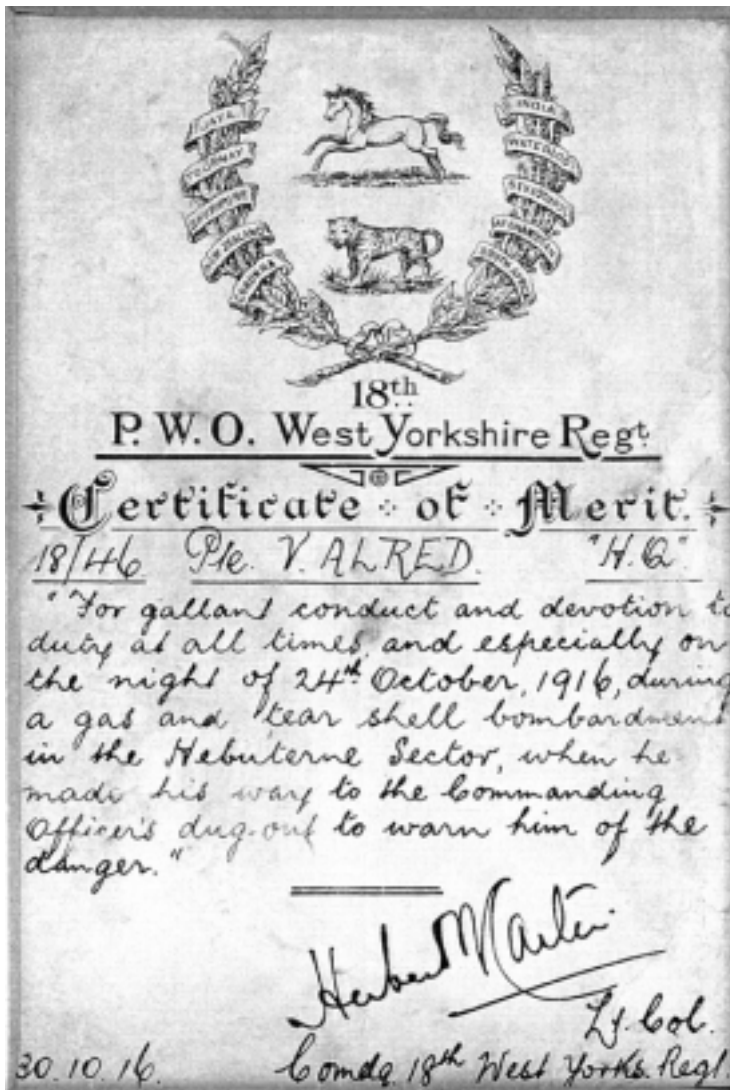 JAVA
TOURNAY
CORUNNA
NEW ZEALAND
INDIA
WATERLOO
SEVASTOPOL
AFGHANISTAN
SOUTH AFRICA
18th
P.W.O. West Yorkshire Regt.
Certificate of Merit.
18/46 Pte. V. ALRED. "H.Q."
"For gallant conduct and devotion to
duty at all times, and especially on
the night of 24th October, 1916, during
a gas and tear shell bombardment
in the Hebuterne Sector, when he
made his way to the Commanding
Officer's dug-out to warn him of the
danger."
Herbert Carter.
Lt. Col.
30.10.16. Comdg. 18th West Yorks. Regt.